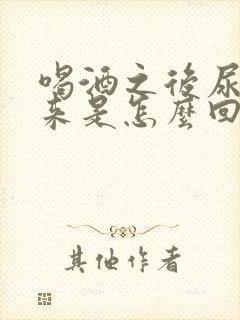 喝酒之後尿
來是怎麼回
其他作者